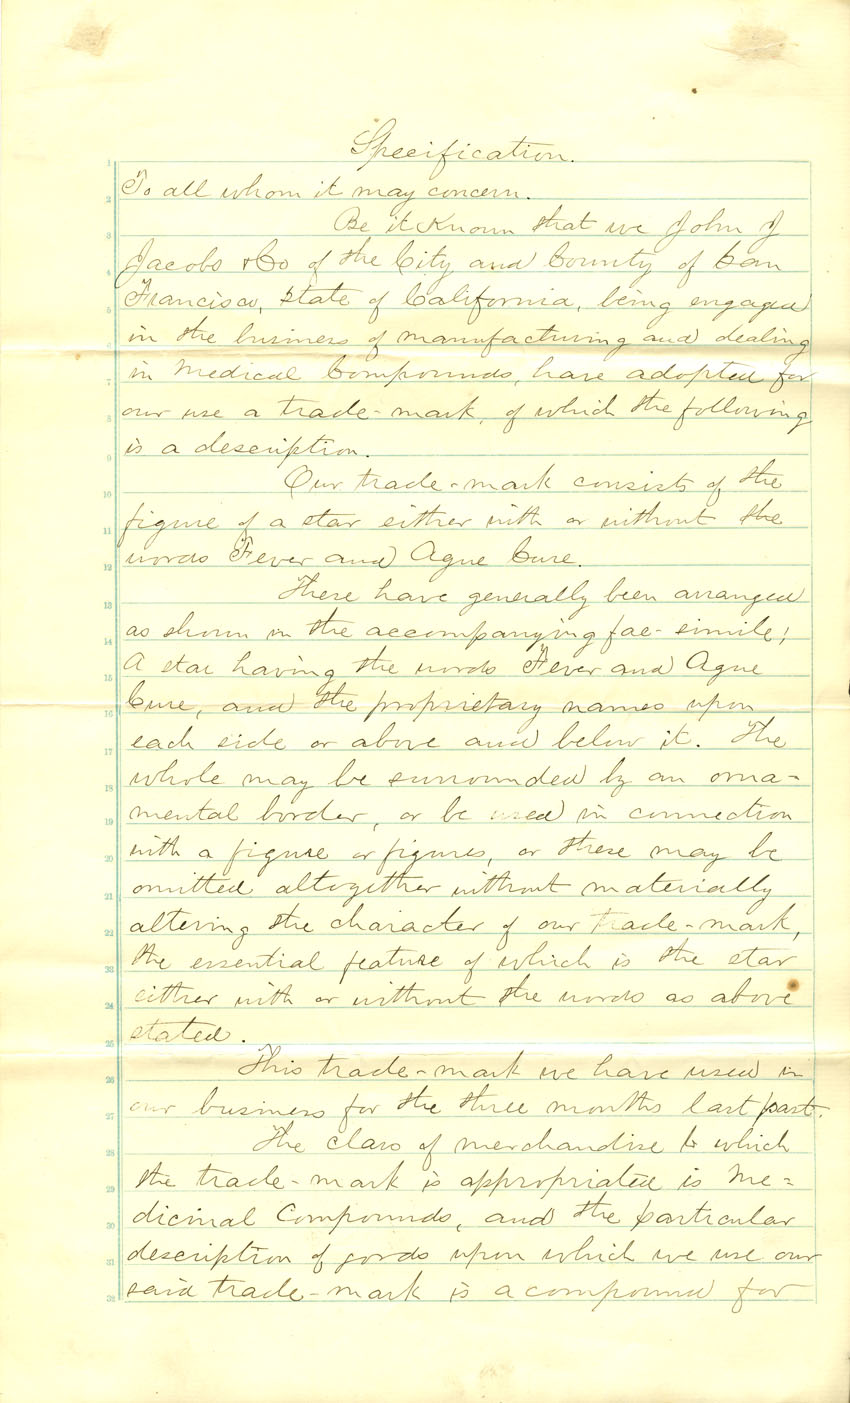 Specification.
To all whom it may concern.
Be it Known that we John J
Jacobs & Co of the City and County of San
Francisco, State of California, being engaged
in the business of manufacturing and dealing
in Medical Compounds, have adopted for
our use a trade-mark, of which the following
is a description.
Our trade-mark consists of the
figure of a star either with or without the
words Fever and Ague Cure.
These have generally been arranged
as shown in the accompanying fac-simile;
A star having the words Fever and Ague
Cure, and the proprietary names upon
each side or above and below it. The
whole may be surrounded by an orna-
mental border, or be used in connection
with a figure or figures, or these may be
omitted altogether without materially
altering the character of our trade-mark,
the essential feature of which is the star
either with or without the words as above
stated.
This trade-mark we have used in
our business for the three months last past.
The class of merchandise to which
the trade-mark is appropriated is Me=
dicinal Compounds, and the particular
description of goods upon which we use our
said trade-mark is a compound for
1
2
3
4
5
6
7
8
9
10
11
12
13
14
15
16
17
18
19
20
21
22
23
24
25
26
27
28
29
30
31
32